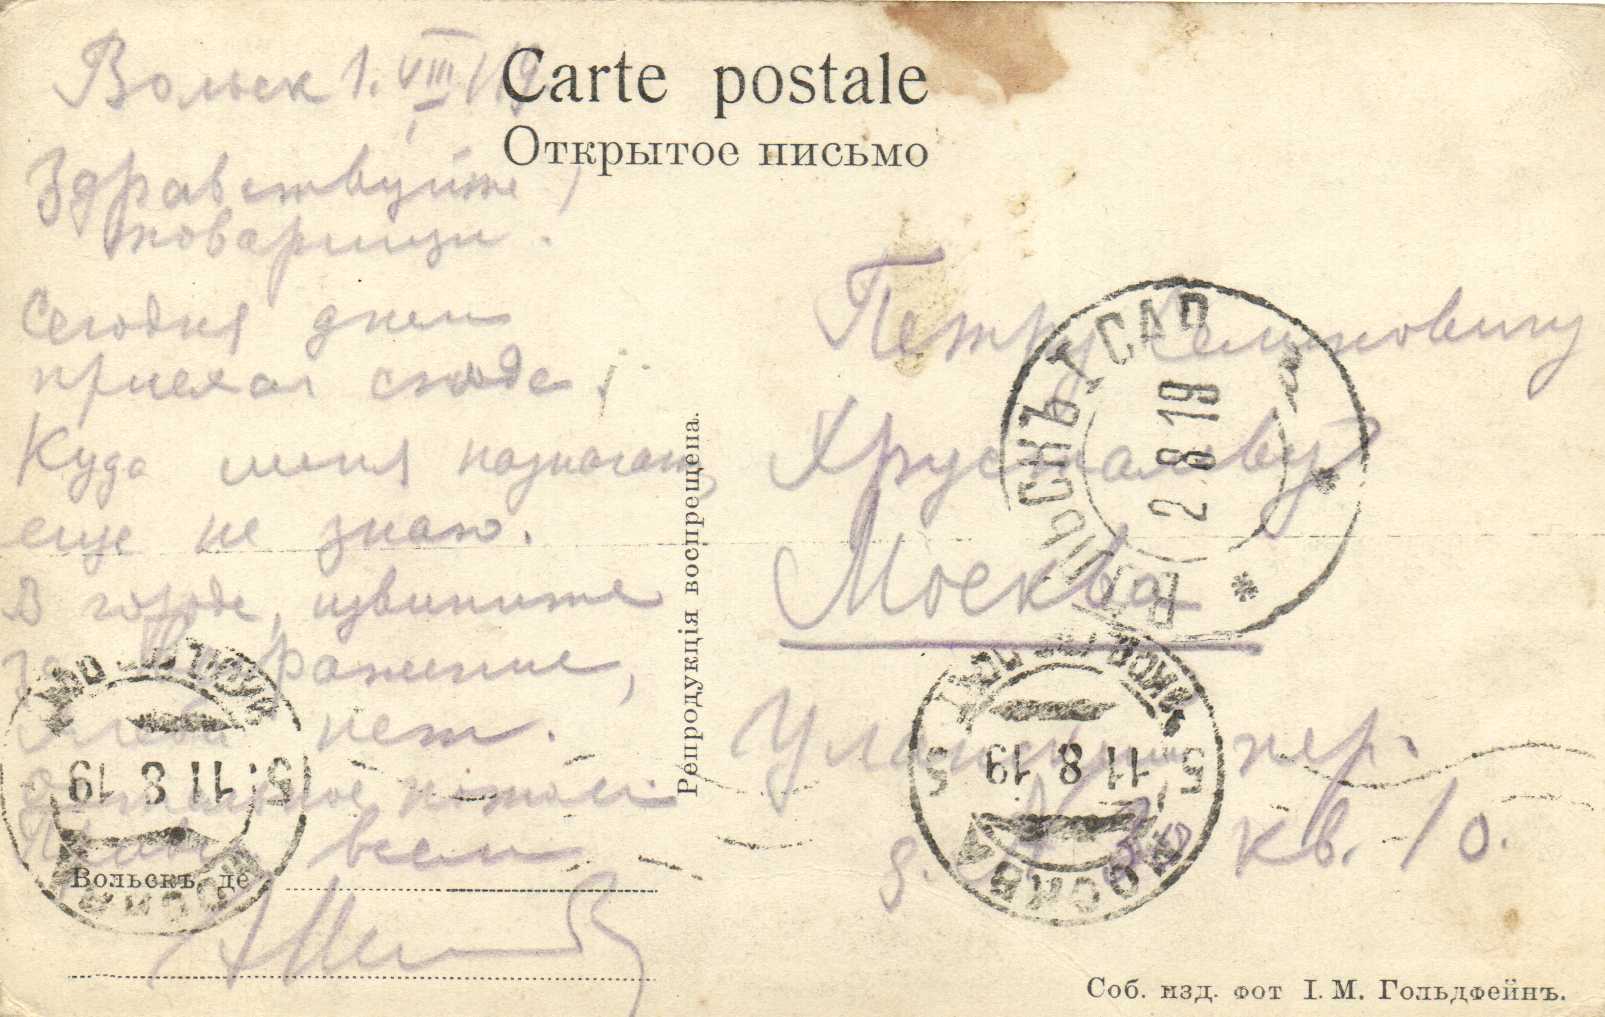 Carte postale
Открытое письмо
Вольск 1. VIII 19
Здравствуйте,
товарищи.
Сегодня днем
приехал сюда.
Куда меня назначат,
еще не знаю.
В городе, извините
за выражение,
хлеба нет.
потом.
Привет всем
Вольскъ де
Репродукція воспрещена.
Петру Семеновичу
Хрусталеву
Москва
Уланский пер.
д. № кв. 10.
ВОЛЬСКЪ САР
2 8 19
МОСКВА
5 11 8 19
МОСКВА
5 11 8 19 5
Соб. изд. фот І. М. Гольдфейнъ.